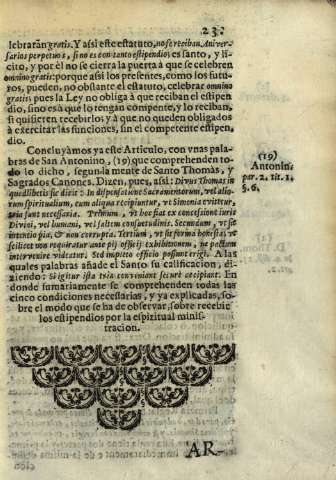 23.
lebrarán gratis. Y assi este estatuto, no se reciban Aniver-
sarios perpetuos, si no es con tanto estipendio; es santo, y lí-
cito, y por él no se cierra la puerta à que se celebren
omnino gratis: porque assi los presentes, como los futu-
ros, pueden, no obstante el estatuto, celebrar omnino
gratis; pues la Ley no obliga à que reciban el estipen-
dio, sino es à que lo tengan competente, y lo reciban,
si quisieren recebirlos y à que no queden obligados
à exercitar las funciones, sin el competente estipen-
dio.
Concluyámos ya este Articulo, con vnas pala-
bras de San Antonino, (19) que comprehenden to-
do lo dicho, segun la mente de Santo Thomas, y
Sagrados Canones. Dizen, pues, assi: Divus Thomas in
quadlibetis sic dicit: In dispensatione Sacramentorum, vel alio-
rum spiritualium, cum aliqua recipiuntur, vt Simonia evitetur,
tria sunt necessaria. Primum, vt hoc fiat ex concessione iuris
Divini, vel humani, vel saltem consuetudinis. Secundum, vt sit
intentio pia, & non corrupta. Tertium, vt sit forma honesta; vt
scilicet non requiratur ante ipsi officij exhibitionem, ne pactum
intervenire videatur. Sed impleto officio possunt exigi. A las
quales palabras añade el Santo su calificacion, di-
ziendo: Si igitur ista tria conveniant secure accipiat. En
donde sumariamente se comprehenden todas las
cinco condiciones necessarias, y ya explicadas, so-
bre el modo que se ha de observar, sobre recebir
los estipendios por la espiritual minis-
tracion.
(19)
Antonin.
par. 2. tit. 1.
§. 6.
AR-